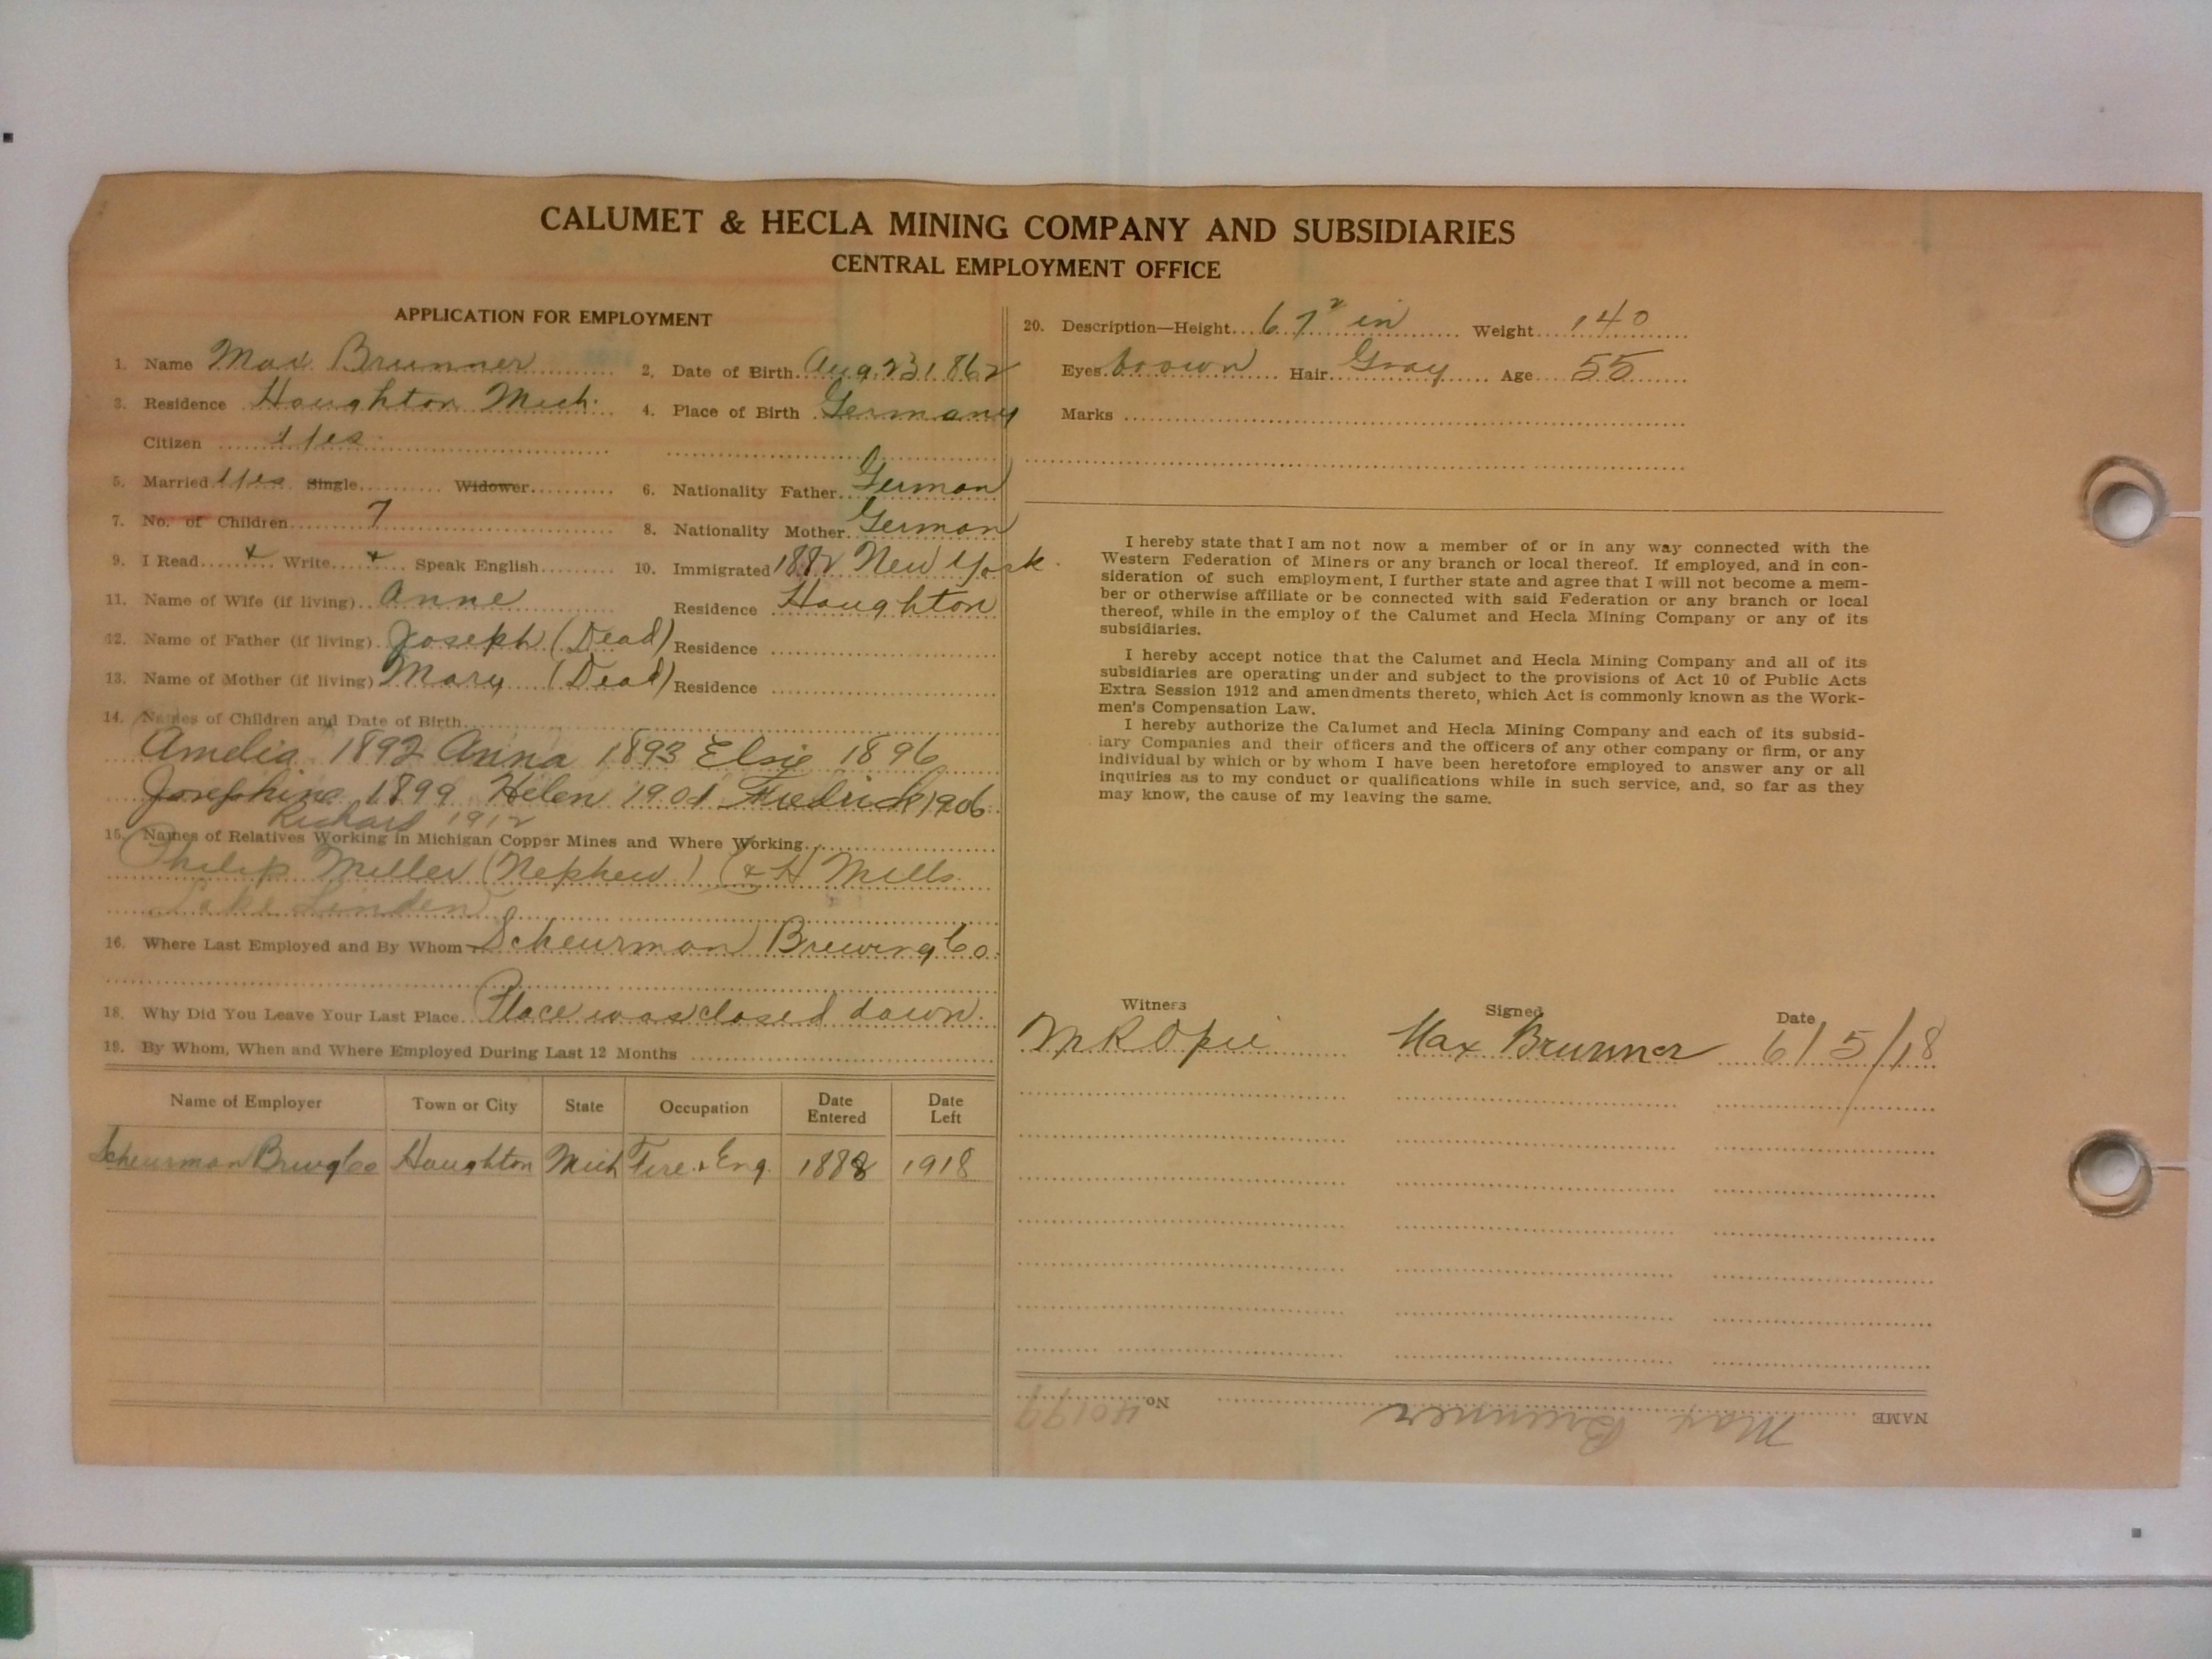 CALUMET & HECLA MINING COMPANY AND SUBSIDIARIES
CENTRAL EMPLOYMENT OFFICE
APPLICATION FOR EMPLOYMENT
1. Name Max Brunner 2. Date of Birth Aug 23 1862
3. Residence Houghton Mich. 4. Place of Birth Germany
Citizen Yes
5. Married Yes Single Widower 6. Nationality Father German
7. No. of Children 7 8. Nationality Mother German
9. I Read x Write x Speak English 10. Immigrated 1882 New York.
11. Name of Wife (if living) Anne Residence Houghton
12. Name of Father (if living) Joseph (Dead) Residence
13. Name of Mother (if living) Mary (Dead) Residence
14. Names of Children and Date of Birth
Amelia 1892 Anna 1893 Elsie 1896
Josephine 1899 Helen 1901 Fredrick 1906
Richard 1912
15. Names of Relatives Working in Michigan Copper Mines and Where Working
Philip Miller (Nephew) C & H Mills
Lake Linden
16. Where Last Employed and By Whom Scheurman Brewing Co.
18. Why Did You Leave Your Last Place Place was closed down.
19. By Whom, When and Where Employed During Last 12 Months
Name of Employer Town or City State Occupation Date Entered Date Left
Scheurman Brwg Co Houghton Mich Fire. & Eng. 1888 1918
20. Description—Height 67² in Weight 140
Eyes brown Hair Gray Age 55
Marks
I hereby state that I am not now a member of or in any way connected with the
Western Federation of Miners or any branch or local thereof. If employed, and in con-
sideration of such employment, I further state and agree that I will not become a mem-
ber or otherwise affiliate or be connected with said Federation or any branch or local
thereof, while in the employ of the Calumet and Hecla Mining Company or any of its
subsidiaries.
I hereby accept notice that the Calumet and Hecla Mining Company and all of its
subsidiaries are operating under and subject to the provisions of Act 10 of Public Acts
Extra Session 1912 and amendments thereto, which Act is commonly known as the Work-
men's Compensation Law.
I hereby authorize the Calumet and Hecla Mining Company and each of its subsid-
iary Companies and their officers and the officers of any other company or firm, or any
individual by which or by whom I have been heretofore employed to answer any or all
inquiries as to my conduct or qualifications while in such service, and, so far as they
may know, the cause of my leaving the same.
Witness Signed Date
M R Opie Max Brunner 6/5/18
NAME Max Brunner No. 40199